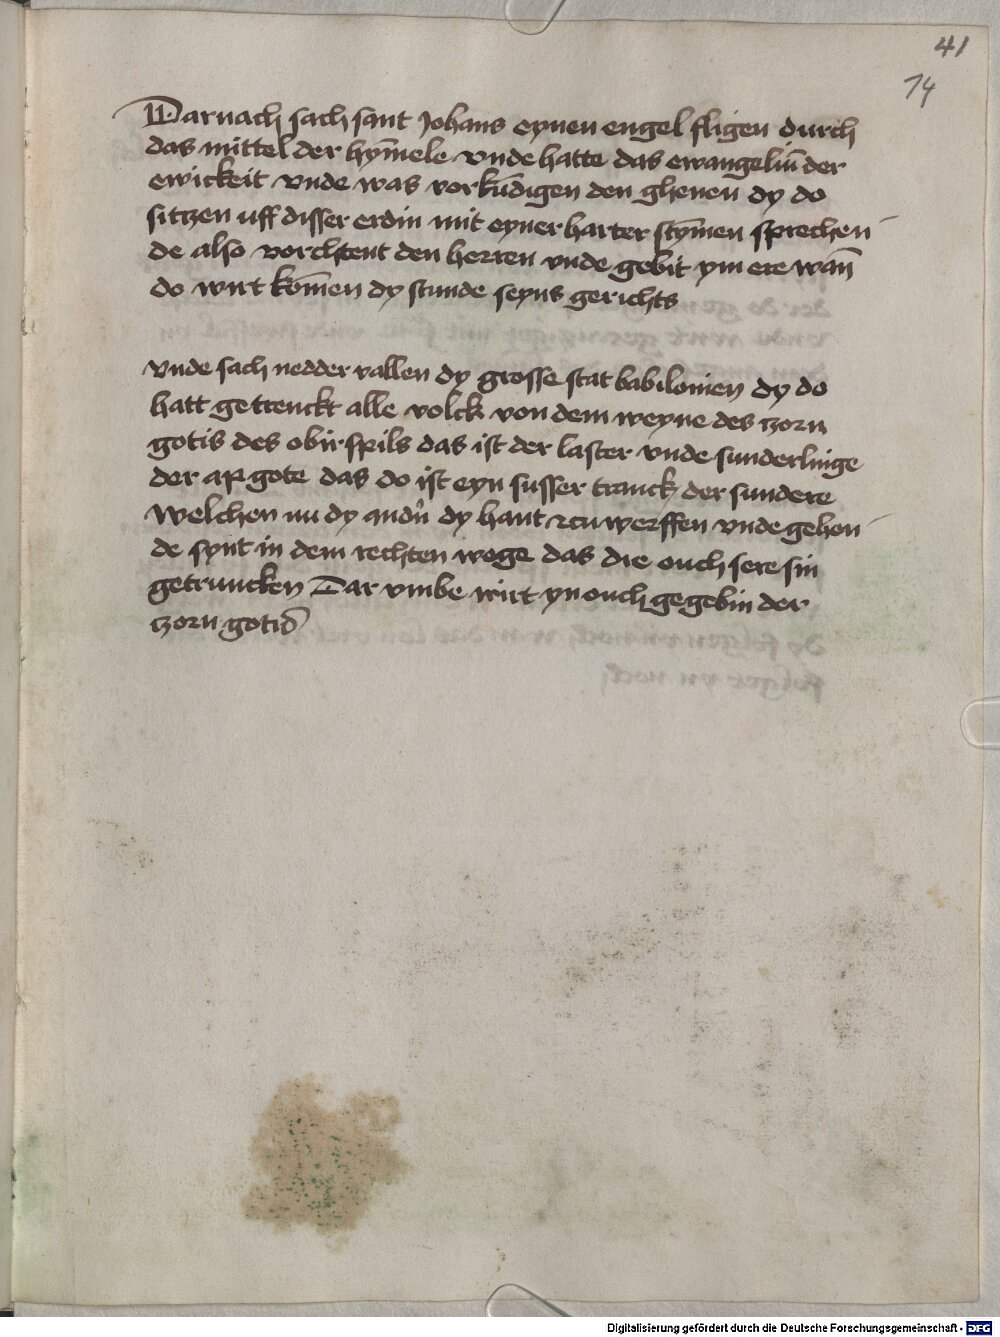 41
14
Darnach sach sant Johans eynen engel fligen durch
das mittel der hȳmele vnde hatte das ewangeliū der
ewickeit vnde was vorkūdigen den ghenen dy do
sitzen uff disser erdin mit eyner harter stȳmen sprechen
de also vorchtent den herren vnde gebit ym ere wan̄
do wirt kōmen dy stunde seyns gerichts
vnde sach nedder vallen dy grosse stat babilonien dy do
hatt getrenckt alle volck von dem weyne des zorn
gotis des obirspils das ist der laster vnde sunderlinge
der apgote das do ist eyn susser tranck der sundere
welchen nu dy andn̄ dy hant zcu werffen vnde gehen
de synt in dem rechten wege das die ouch sere sin
getruncken Dar vmbe wirt yn ouch gegebin der
zorn gotis
Digitalisierung gefördert durch die Deutsche Forschungsgemeinschaft - DFG